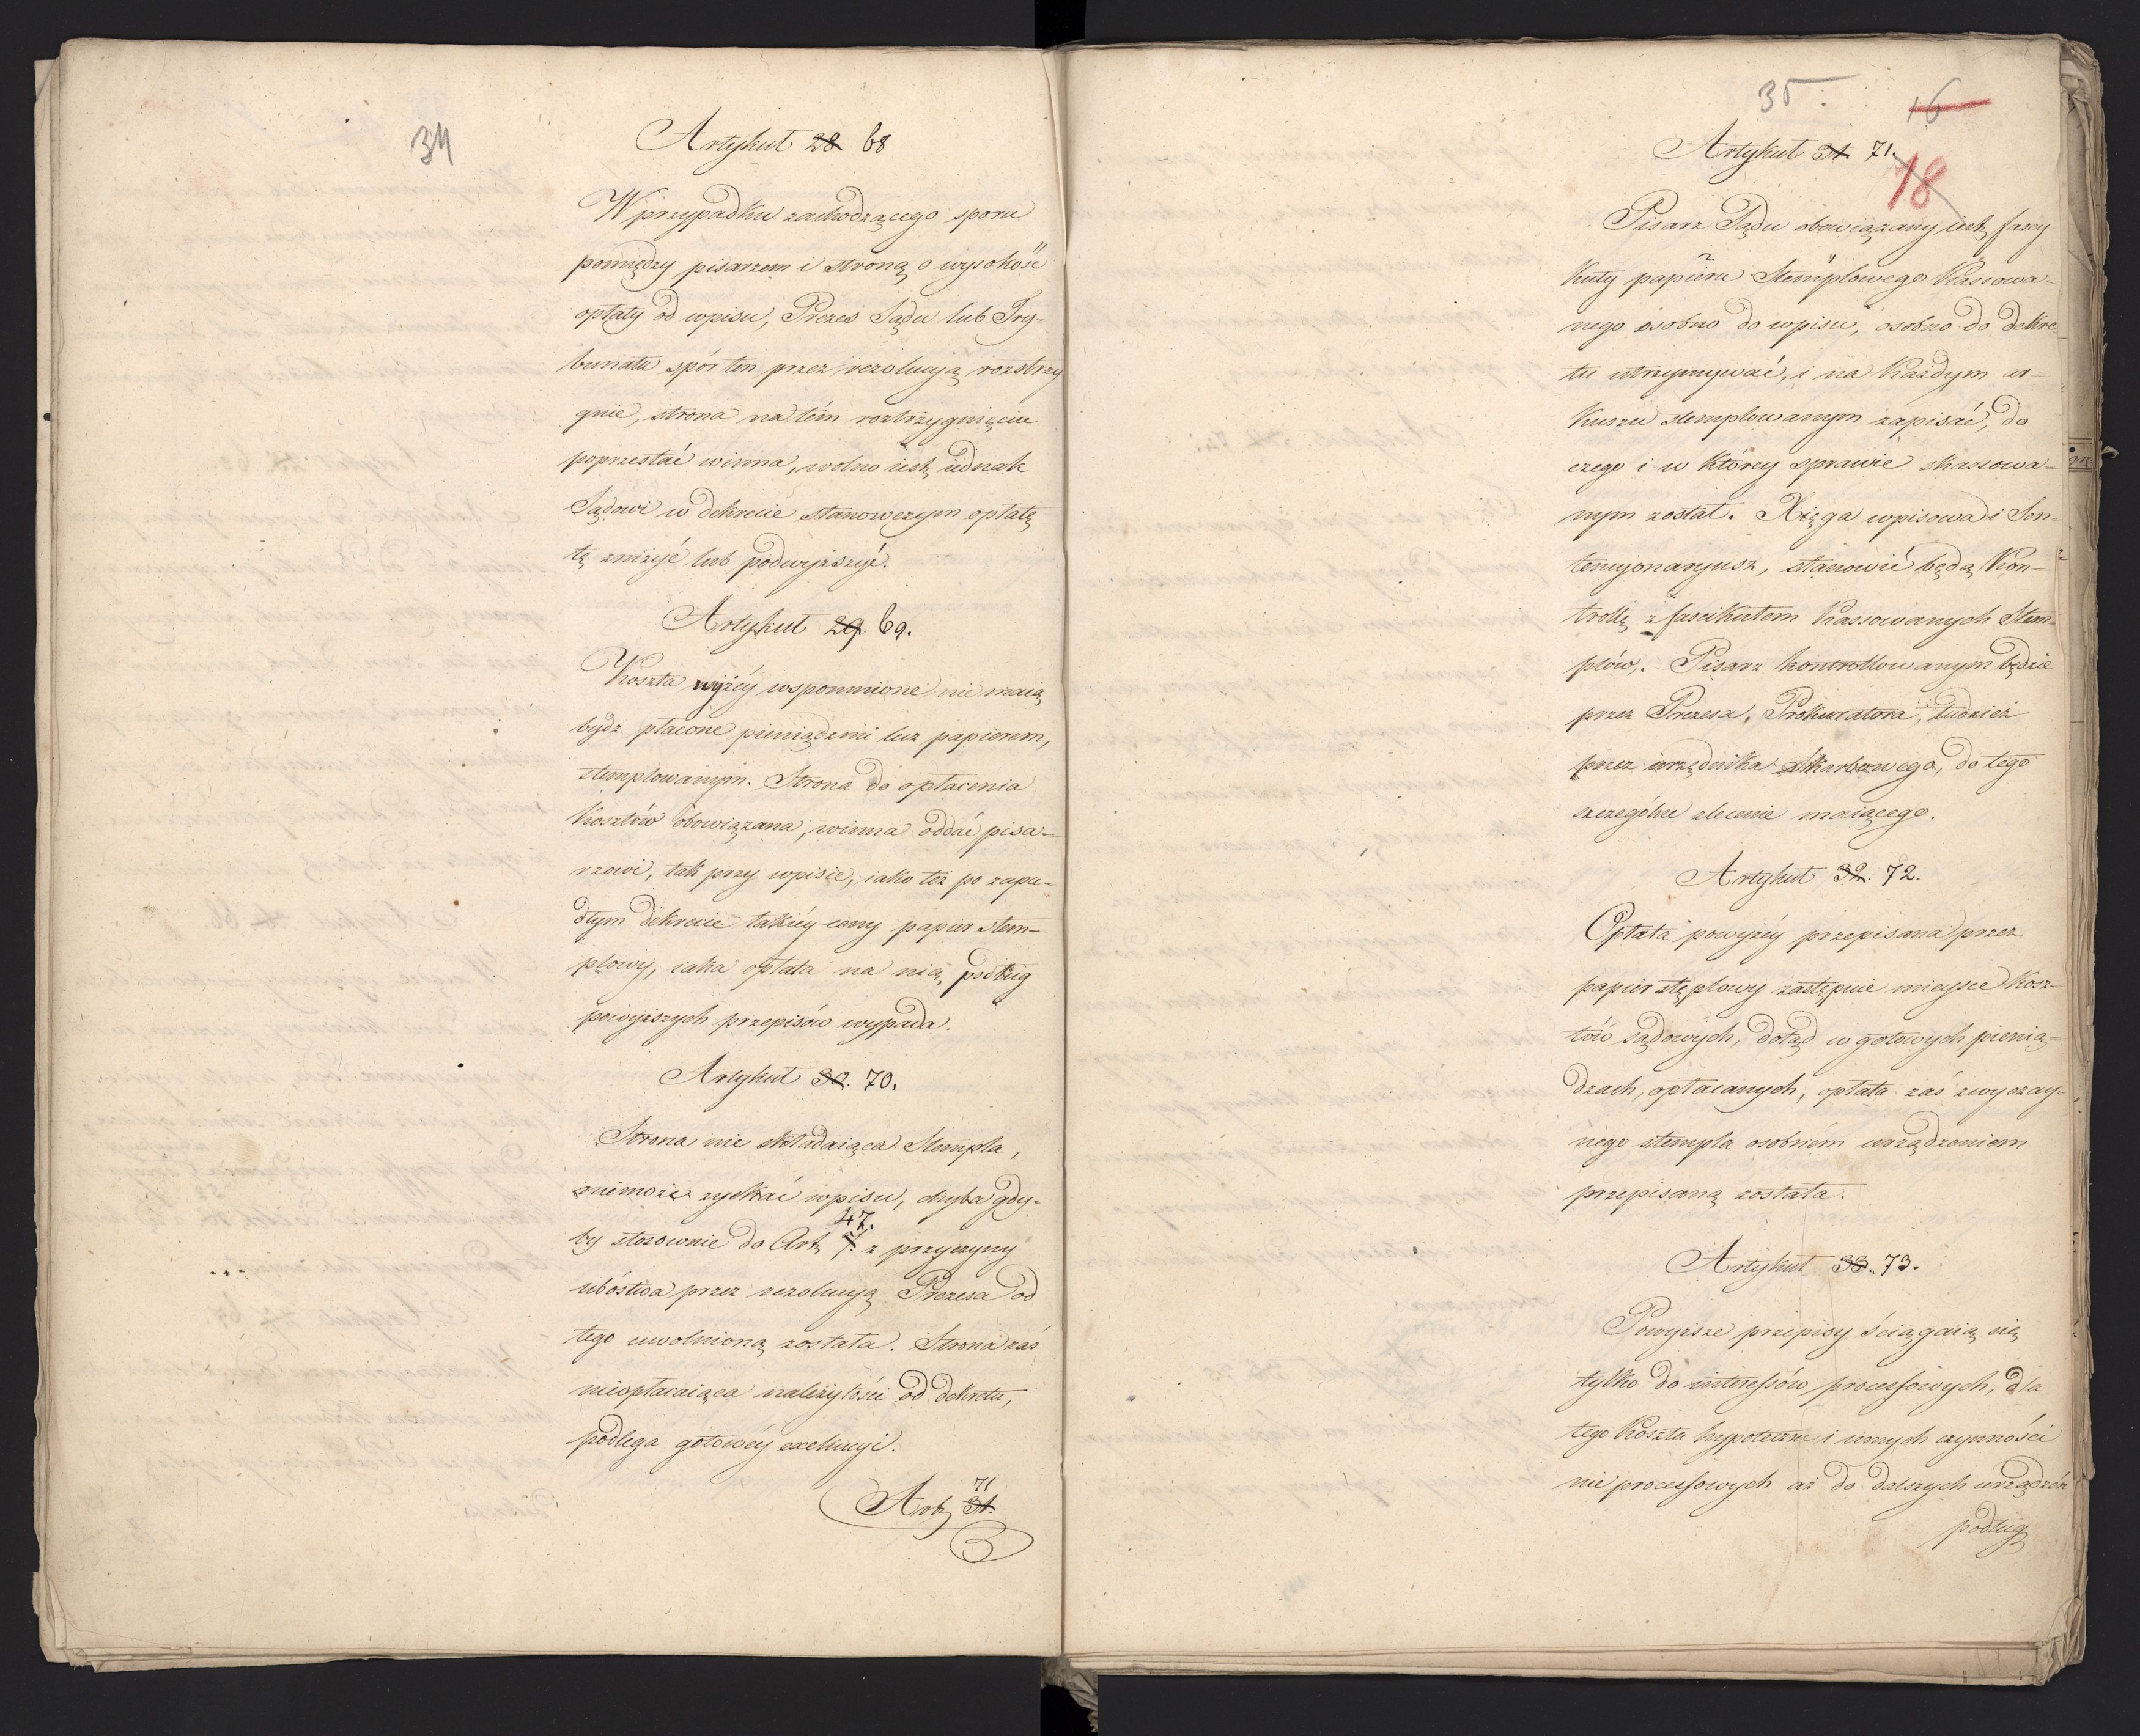 34
Artykuł 28 68
W przypadku zachodzącego sporu
pomiędzy pisarzem i stroną o wysokość
opłaty od wpisu, Prezes Sądu lub Try-
bunału spór ten przez rezolucyą rozstrzy
gnie, strona na tém roztrzygnięciu
poprzestać winna, wolno iest iednak
Sądowi w dekrecie stanowczym opłatę
tę zniżyć lub podwyższyć.
Artykuł 29. 69.
Koszta wyżéy wspomnione nie maią
bydz płacone pieniądzmi lecz papierem,
stemplowanym. Strona do opłacenia
Kosztów obowiązana, winna oddać pisa-
rzowi, tak przy wpisie, iako też po zapa-
dłym dekrecie takiéy ceny papier stem-
plowy, iaka opłata na nią podług
powyższych przepisów wypada.
Artykuł 30. 70.
Strona nie składaiąca Stempla,
niemoże zyskać wpisu, chyba gdy-
47.
by stosownie do Art. 7. z przyczyny
ubóstwa przez rezolucyą Prezesa od
tego uwolnioną została. Strona zaś
nieopłacaiąca należytości od dekretu,
podlega gotowéy exekucyi.
71
Art. 31.
35.
16
Artykuł 31. 71.
18
Pisarz Sądu obowiązany iest, fascy
kuły papieru Stemplowego Kassowa-
nego osobno do wpisu, osobno do dekre
tu utrzymywać, i na Każdym ar-
kuszu stemplowanym zapisać, do
czego i w któréy sprawie skassowa-
nym został. Xięga wpisowa i Sen-
tencyonaryusz, stanowić będą Kon-
trollę z fascikułem Kassowanych Stem-
plów. Pisarz kontrollowanym będzie
przez Prezesa, Prokuratora, tudzież
przez urzędnika Skarbowego, do tego
szczególne zlecenie maiącego.
Artykuł 32. 72.
Opłata powyżéy przepisana przez
papier stęplowy zastępuie mieysce Kosz-
tów sądowych, dotąd w gotowych pienią-
dzach, opłacanych, opłata zaś zwyczay-
nego stempla osobném urządzeniem
przepisaną została.
Artykuł 33. 73.
Powyższe przepisy ściągaią się
tylko do interessów processowych, dla
tego Koszta hypoteczne i innych czynności
nie processowych aż do dalszych urządzeń
podług